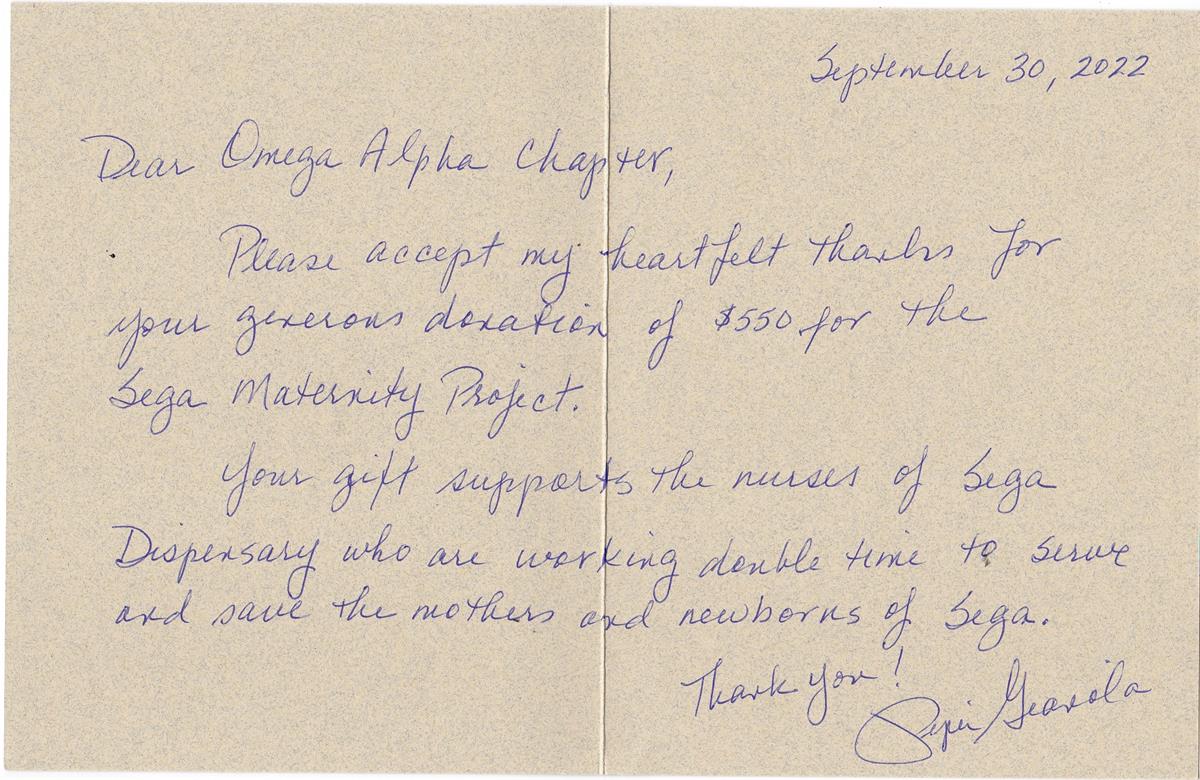 September 30, 2022
Dear Omega Alpha Chapter,
Please accept my heartfelt thanks for
your generous donation of $550 for the
Sega Maternity Project.
Your gift supports the nurses of Sega
Dispensary who are working double time to serve
and save the mothers and newborns of Sega.
Thank you!